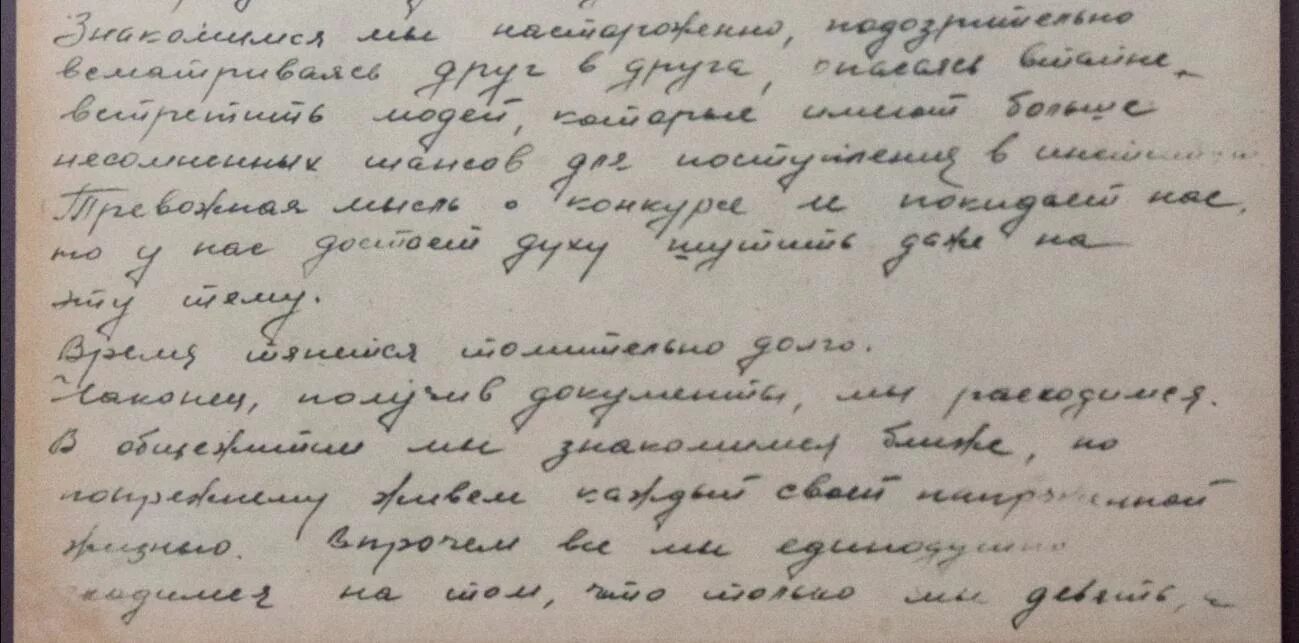 Знакомимся мы настороженно, подозрительно
всматриваясь друг в друга, опасаясь втайне
встретить людей, которые имеют больше
несомненных шансов для поступления в институт
Тревожная мысль о конкурсе и покидает нас,
но у нас достает духу шутить даже на
эту тему.
Время тянется томительно долго.
Наконец, получив документы, мы расходимся.
В общежитии мы знакомимся ближе, но
попрежнему живем каждый своей напряженной
жизнью. Впрочем все мы единодушно
сходимся на том, что только мы девять,